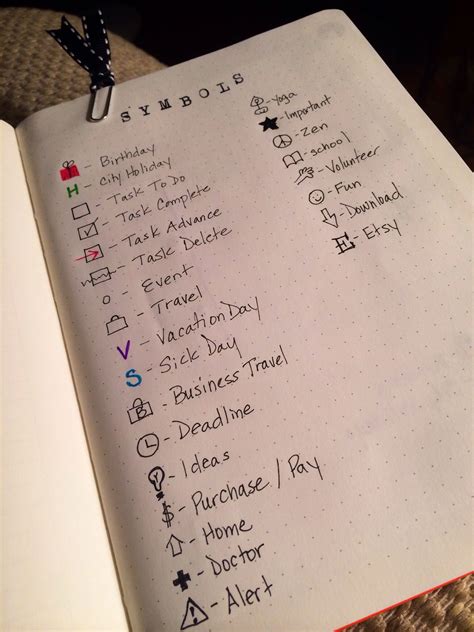 SYMBOLS
- Birthday
H - City Holiday
- Task To Do
- Task Complete
- Task Advance
- Task Delete
- Event
- Travel
V - Vacation Day
S - Sick Day
B - Business Travel
- Deadline
- Ideas
$ - Purchase / Pay
- Home
- Doctor
! - Alert
- Yoga
- Important
- Zen
- School
- Volunteer
- Fun
- Download
E - Etsy